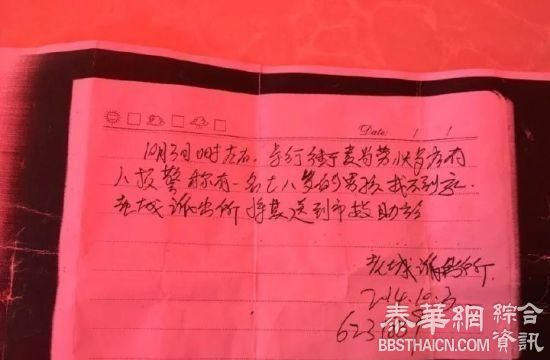 Date: / /
10月3日 时左右,步行街麦当劳快餐店有
人报警称有一名七八岁的男孩找不到家.
老城派出所将其送到市救助站
老城派出所
2014.10.3
623
泰華網 綜合資訊
BBSTHAICN.COM